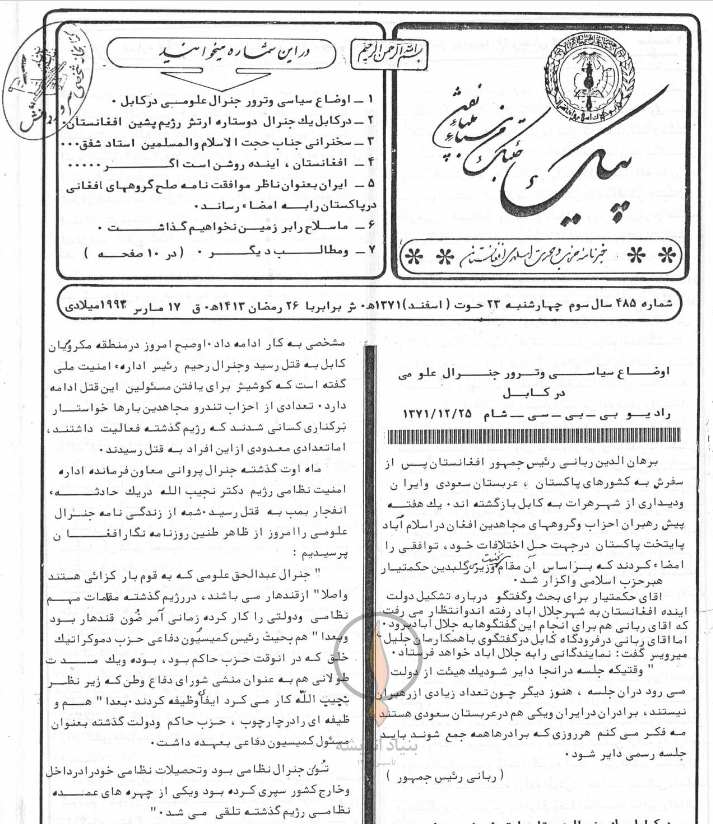 بسم الله الرحمن الرحیم
پیک
خبرنامه حزب وحدت اسلامی افغانستان
در این شماره میخوانید
۱ ــ اوضاع سیاسی وترور جنرال علومـی درکابل ۰
۲ ــ درکابل یک جنرال دوستاره ارتش رژیم پشین افغانستان:
۳ ــ سخنرانی جناب حجت الاسلام والمسلمین استاد شفق۰۰۰
۴ ــ افغانستان ، اینده روشن است اگـــر ۰۰۰۰۰
۵ ــ ایران بعنوان ناظر موافقت نامه صلح گروههای افغانی
درپاکستان رابـه امضاء رساند۰
۶ ــ ماسلاح رابر زمین نخواهیم گذاشـت ۰
۷ ــ ومطالـــب دیگـــر ۰ (در ۱۰ صفحه )
شماره ۴۸۵ سال سوم چهارشنبه ۲۳ حوت (اسفند)۱۳۷۱ه۰ ش برابربا ۲۶ رمضان ۱۴۱۳ه۰ ق ۱۷ مارس ۱۹۹۳میلادی
اوضـاع سیاســی وترور جنـرال علو می
در کـابـل
رادیـو بی ــ بی ــ سی ــ شام ۱۳۷۱/۱۲/۲۵
برهان الدین ربانی رئیس جمهور افغانستان پس از
سفرش به کشورهای پاکستان ، عربستان سعودی وایرا ن
ودیداری از شهرهرات به کابل بازگشته اند۰ یک هفتــه
پیش رهبران احزاب وگروههای مجاهدین افغان دراسلام آباد
پایتخت پاکستان درجهت حل اختلافات خود، توافقی را
امضاء کردند که براساس آن مقام وزیر گلبدین حکمتیار
هبرحزب اسلامی واگزار شد۰
اقای حکمتیار برای بحث وگفتگو درباره تشکیل دولت
اینده افغانستان به شهرجلال اباد رفته اندوانتظار می رفت
که اقای ربانی هم برای انجام این گفتگوهابه جلال ابادبرود۰
اما اقای ربانی درفرودگاه کابل درگفتگوی باهمکارما جلیل
میرویس گفت: نمایندگانی رابه جلال اباد خواهد فرستاد۰
" وقتیکه جلسه درانجا دایر شودیک هیئت از دولت
می رود دران جلسه ، هنوز دیگر چون تعداد زیادی ازرهبران
نیستند، برادران درایران ویکی هم درعربستان سعودی هستند
مه فکر می کنم هرروزی که برادرهاهمه جمع شوند باید
جلسه رسمی دایر شود۰
( ربانی رئیس جمهور )
مشخصی به کار ادامه داد۰اوصبح امروز درمنطقه مکرویان
کابل به قتل رسید وجنرال رحیم رئیس اداره امنیت ملی
گفته است که کوشیش برای یافتن مسئولین این قتل ادامه
دارد۰ تعدادی از احزاب تندرو مجاهدین بارها خواستـار
برکناری کسانی شدند که رژیم گذشته فعالیت داشتند،
اما تعدادی معدودی از این افراد به قتل رسیدند۰
ماه اوت گذشته جنرال پروانی معاون فرمانده اداره
امنیت نظامی رژیم دکتر نجیب الله دریک حادثـــه
انفجار بمب به قتل رسید۰شمه از زندگی نامه جنـرال
علومی را امروز از ظاهر طنین روزنامه نگار افغـا ن
پرسیدیم :
" جنرال عبدالحق علومی که به قوم بار کزائی هستند
واصلا" ازقندهار می باشند، دررژیم گذشته مقامات مهـم
نظامی ودولتی را کار کرده زمانی آمر قندهار بـود
وبعدا" هم بحیث رئیس کمیسیون دفاعی حزب دموکراتیک
خلق که در انوقت حزب حاکم بود، بوده ویک مـــد ت
طولانی هم به عنوان منشی شورای دفاع وطن که زیر نظـر
نجیب الله کار می کرد ایفاوظیفه کردند۰بعدا" هـم و
ظیفه ای رادرچارچوب ، حزب حاکم ودولت گذشته بعنوان
مسئول کمیسیون دفاعی بعهده داشت۰
جنرال نظامی بود وتحصیلات نظامی خودرادرداخل
وخارج کشور سپری کرده بود ویکی از چهره های عمــده
نظامـی رژیم گذشته تلقی می شد۰"
بنیاد اندیشه